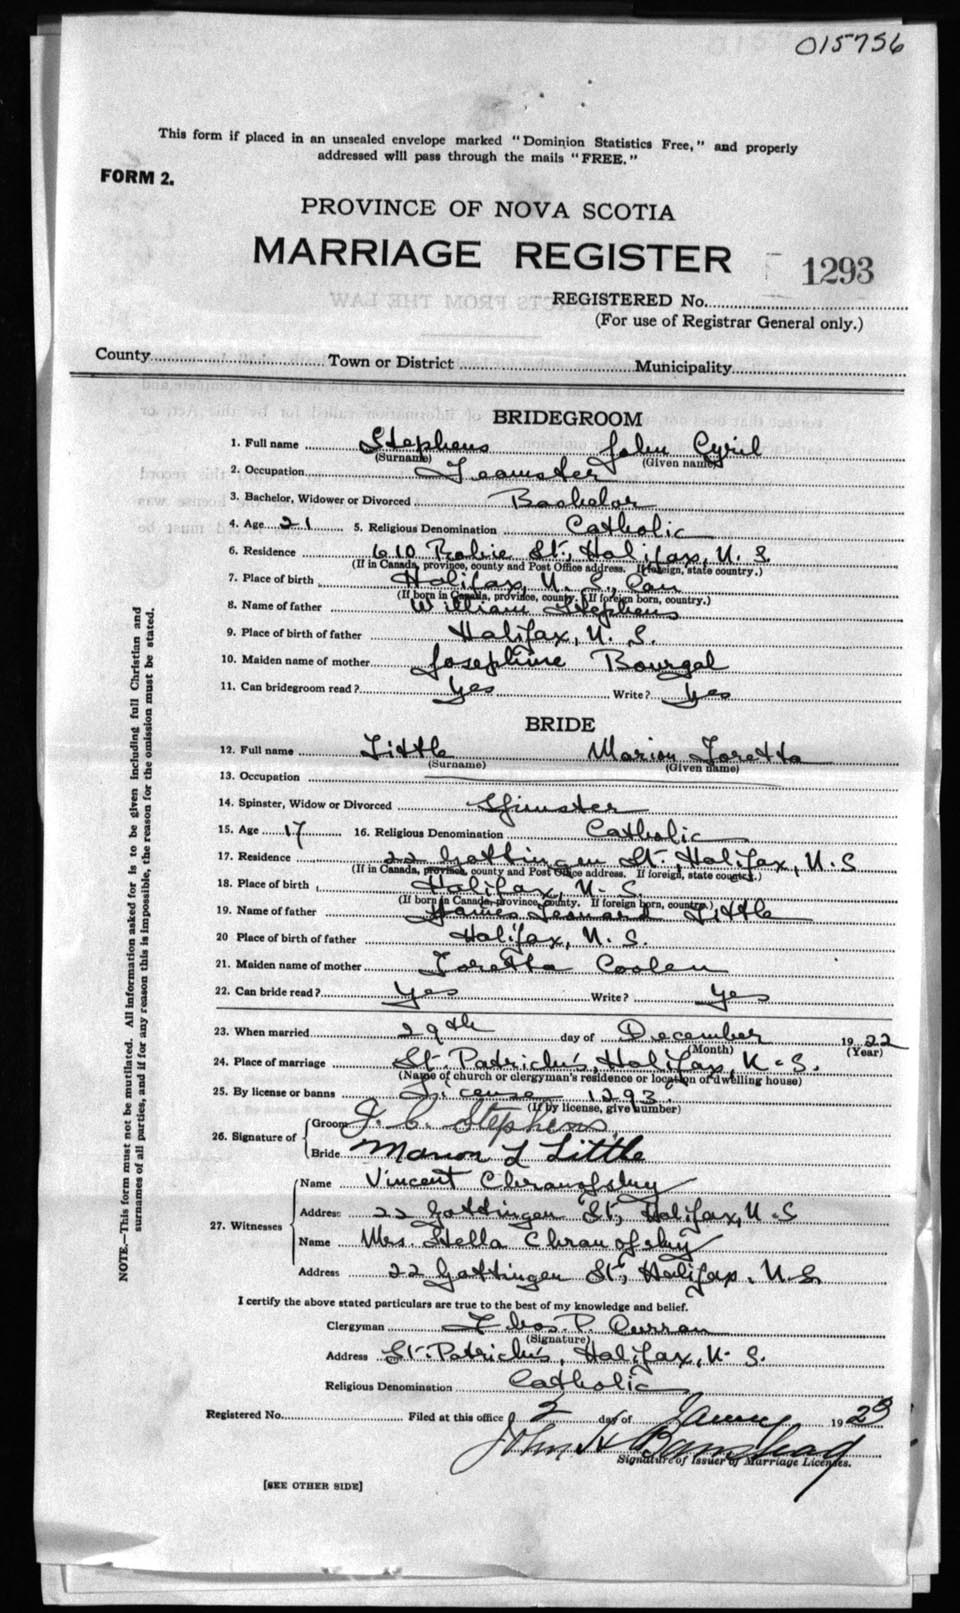 015756
This form if placed in an unsealed envelope marked "Dominion Statistics Free," and properly
addressed will pass through the mails "FREE."
FORM 2.
PROVINCE OF NOVA SCOTIA
MARRIAGE REGISTER
1293
REGISTERED No.
(For use of Registrar General only.)
County Town or District Municipality
BRIDEGROOM
1. Full name Stephens John Cyril
(Surname) (Given name)
2. Occupation Teamster
3. Bachelor, Widower or Divorced Bachelor
4. Age 21 5. Religious Denomination Catholic
6. Residence 610 Robie St., Halifax, N. S.
(If in Canada, province, county and Post Office address. If foreign, state country.)
7. Place of birth Halifax, N. S., Can
(If born in Canada, province, county. If foreign born, country.)
8. Name of father William Stephens
9. Place of birth of father Halifax, N. S.
10. Maiden name of mother Josephine Bourgal
11. Can bridegroom read? Yes Write? Yes
BRIDE
12. Full name Little Marion Loretta
(Surname) (Given name)
13. Occupation
14. Spinster, Widow or Divorced Spinster
15. Age 17 16. Religious Denomination Catholic
17. Residence 22 Gottingen St., Halifax, N. S
(If in Canada, province, county and Post Office address. If foreign, state country.)
18. Place of birth Halifax, N. S.
(If born in Canada, province, county. If foreign born, country.)
19. Name of father James Leonard Little
20 Place of birth of father Halifax, N. S.
21. Maiden name of mother Loretta Coolen
22. Can bride read? Yes Write? Yes
23. When married 29th day of December 1922
(Month) (Year)
24. Place of marriage St. Patrick's, Halifax, N. S.
(Name of church or clergyman's residence or location of dwelling house)
25. By license or banns License 1293.
(If by license, give number)
26. Signature of Groom J. C. Stephens
Bride Marion L Little
27. Witnesses Name Vincent Chranofsky
Address 22 Gottingen St., Halifax, N. S
Name Mrs. Stella Chranofsky
Address 22 Gottingen St., Halifax, N. S.
I certify the above stated particulars are true to the best of my knowledge and belief.
Clergyman Thos. P. Curran
(Signature)
Address St. Patrick's, Halifax, N. S.
Religious Denomination Catholic
Registered No. Filed at this office 2 day of January 1923
John H Barnstead
Signature of Issuer of Marriage Licenses.
[SEE OTHER SIDE]
NOTE.—This form must not be mutilated. All information asked for is to be given including full Christian and
surnames of all parties, and if for any reason this is impossible, the reason for the omission must be stated.